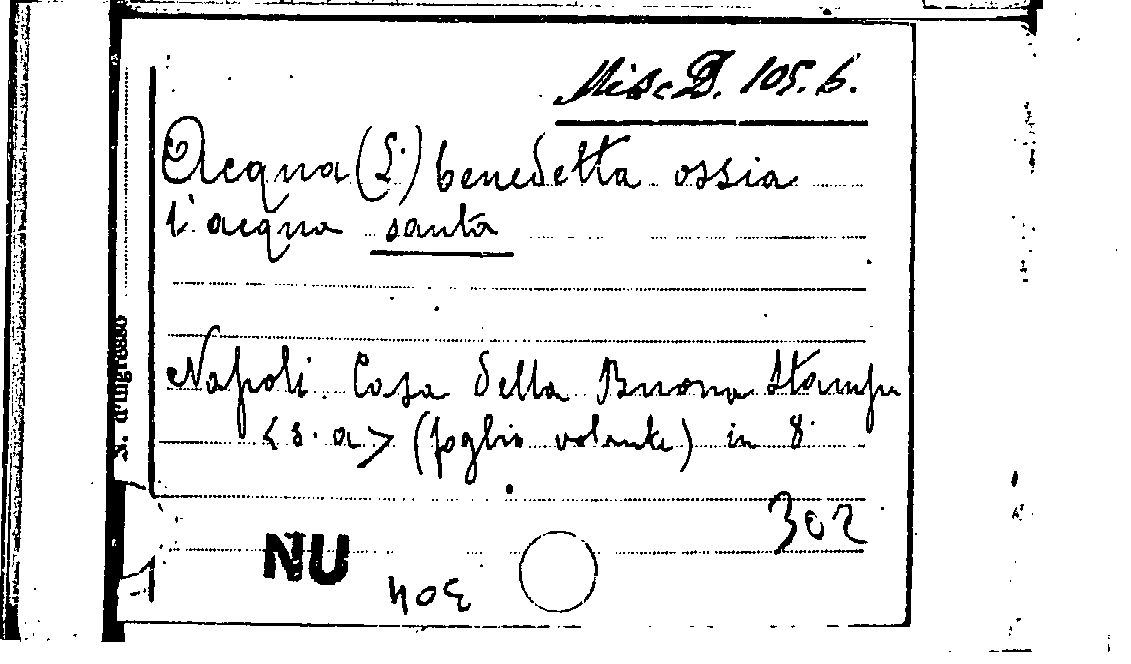 Misc. D. 105. 6.
Acqua (L') benedetta ossia
l'acqua santa
Napoli. Casa della Buona Stampa
<s. a> (foglio volante) in 8°
302
NU
N. d'ingresso